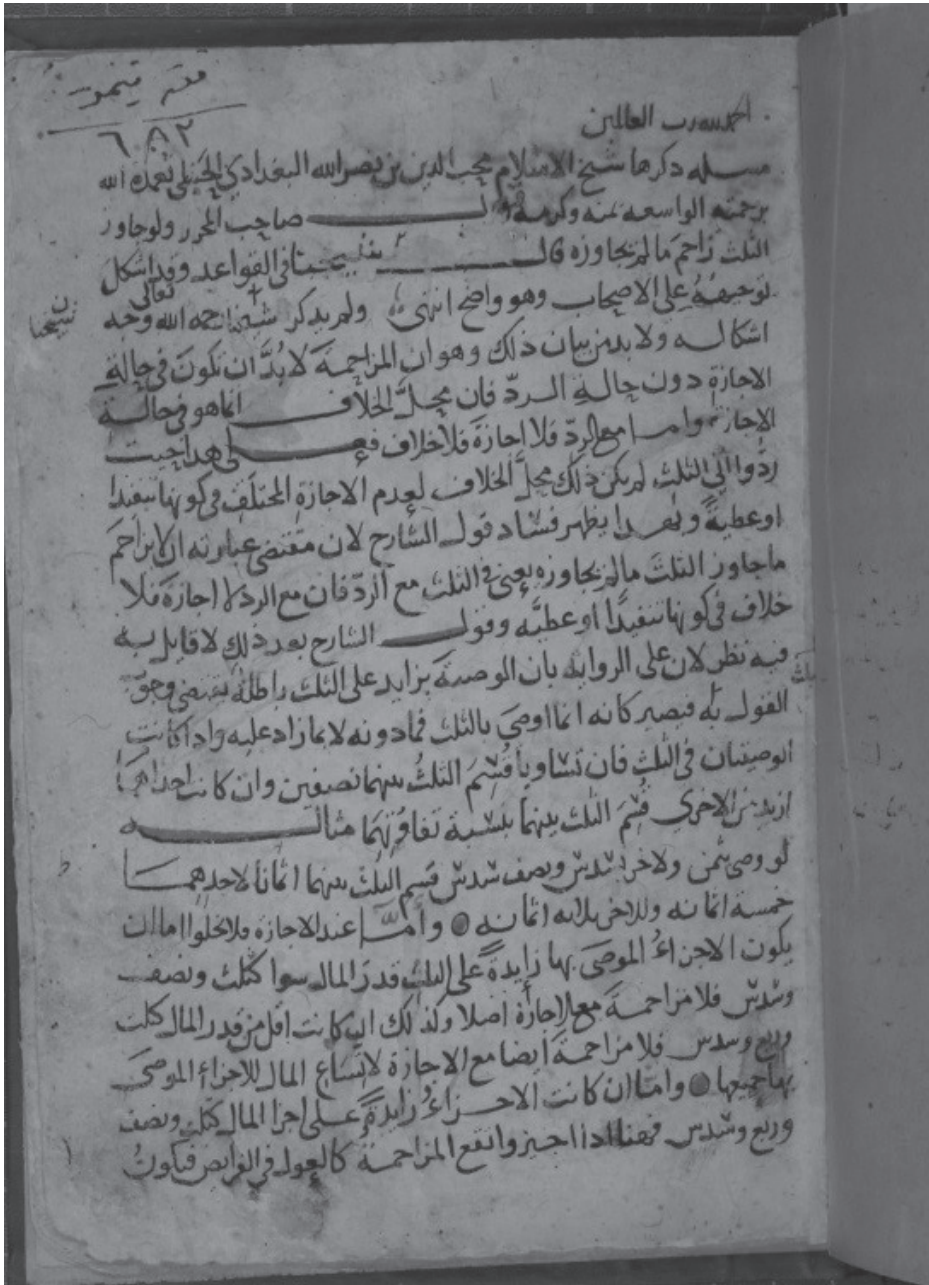 فقه تيمور
٦٨٢
الحمد لله رب العالمين
مسله ذكرها شيخ الاسلام محب الدين بن نصر الله البغدادي الحنبلي تغمده الله
برحمته الواسعه بمنه وكرمه قالــــ صاحب المحرر ولو جاوز
الثلث زاحم ما لم يجاوزه قالــــ شيخنا في القواعد وقد اشكل
توجيهه على الاصحاب وهو واضح انتهى ولم يذكر شيخنا رحمه الله تعالى وجه
شيخنا
اشكاله ولا بد من بيان ذلك وهو ان المزاحمة لا بُدَّ ان تكون في حالة
الاجازة دون حالة الردّ فان محلَّ الخلاف انما هو في حالة
الاجازة واما مع الردّ فلا اجازة فلا خلاف فعلى هذا حيث
ردّوا الى الثلث لم يكن ذلك محلَّ الخلاف لعدم الاجازة المختلف في كونها تنفيذا
او عطيةً وبهذا يظهر فساد قول الشارح لان مقتضى عبارته ان لا يزاحم
ما جاوز الثلث ما لم يجاوزه يعني في الثلث مع الردّ فان مع الرد لا اجازة فلا
خلاف في كونها تنفيذًا او عطيَّه وقولــــ الشارح بعد ذلك لا قايل به
فيه نظر لان على الروايه بان الوصية بزايد على الثلث باطلة يقتضي وجوَ
القول به فيصير كانه انما اوصى بالثلث فما دونه لا بما زاد عليه واذا كانت
الوصيتان في الثلث فان تساويا قُسِمَ الثلثُ بينهما نصفين وان كانت احداهما
ازيد من الاخرى قسِمَ الثلث بينهما بنسبة تفاوتهما مثالــــه
لو وصى بثمن ولاخر بسدس ونصف سدس قسم الثلث بينهما اثمانا لاحدهمــا
خمسة اثمانه وللاخر ثلاثه اثمانه وأمَّا عند الاجازة فلا يخلوا اما ان
يكون الاجزاءُ الموصَى بها زايدةً على الثلث قدرَ المال سوا كثلث ونصف
وسدس فلا مزاحمةَ مع الاجازة اصلا وكذلك ان كانت اقل من قدر المال كثلث
وربع وسدس فلا مزاحمةَ ايضا مع الاجازة لاتساع المال للاجزاء الموصى
بها جميعها واما ان كانت الاجــزاءُ زايدةً على اجزا المال كثلث ونصف
وربع وسدس فهنا اذا اجيزوا تقع المزاحمة كالعول في الفرايض فيكونُ